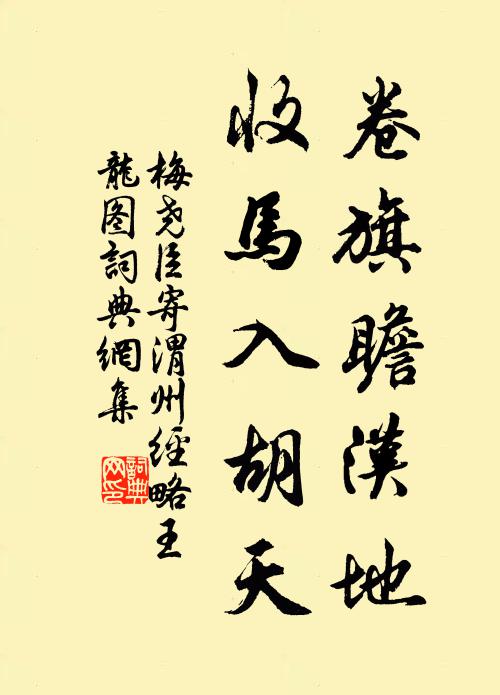 卷旗瞻漢地
收馬入胡天
梅尧臣寄渭州經略王
龍图詞典網集
詞典
网印